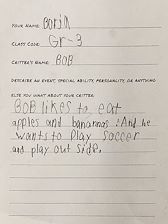 YOUR NAME: Borja
CLASS CODE: Gr-3
CRITTER'S NAME: BOB
DESCRIBE AN EVENT, SPECIAL ABILITY, PERSONALITY, OR ANYTHING
ELSE YOU WANT ABOUT YOUR CRITTER:
BOB likes to eat
apples and bananas. And he
wants to play soccer
and play out side.